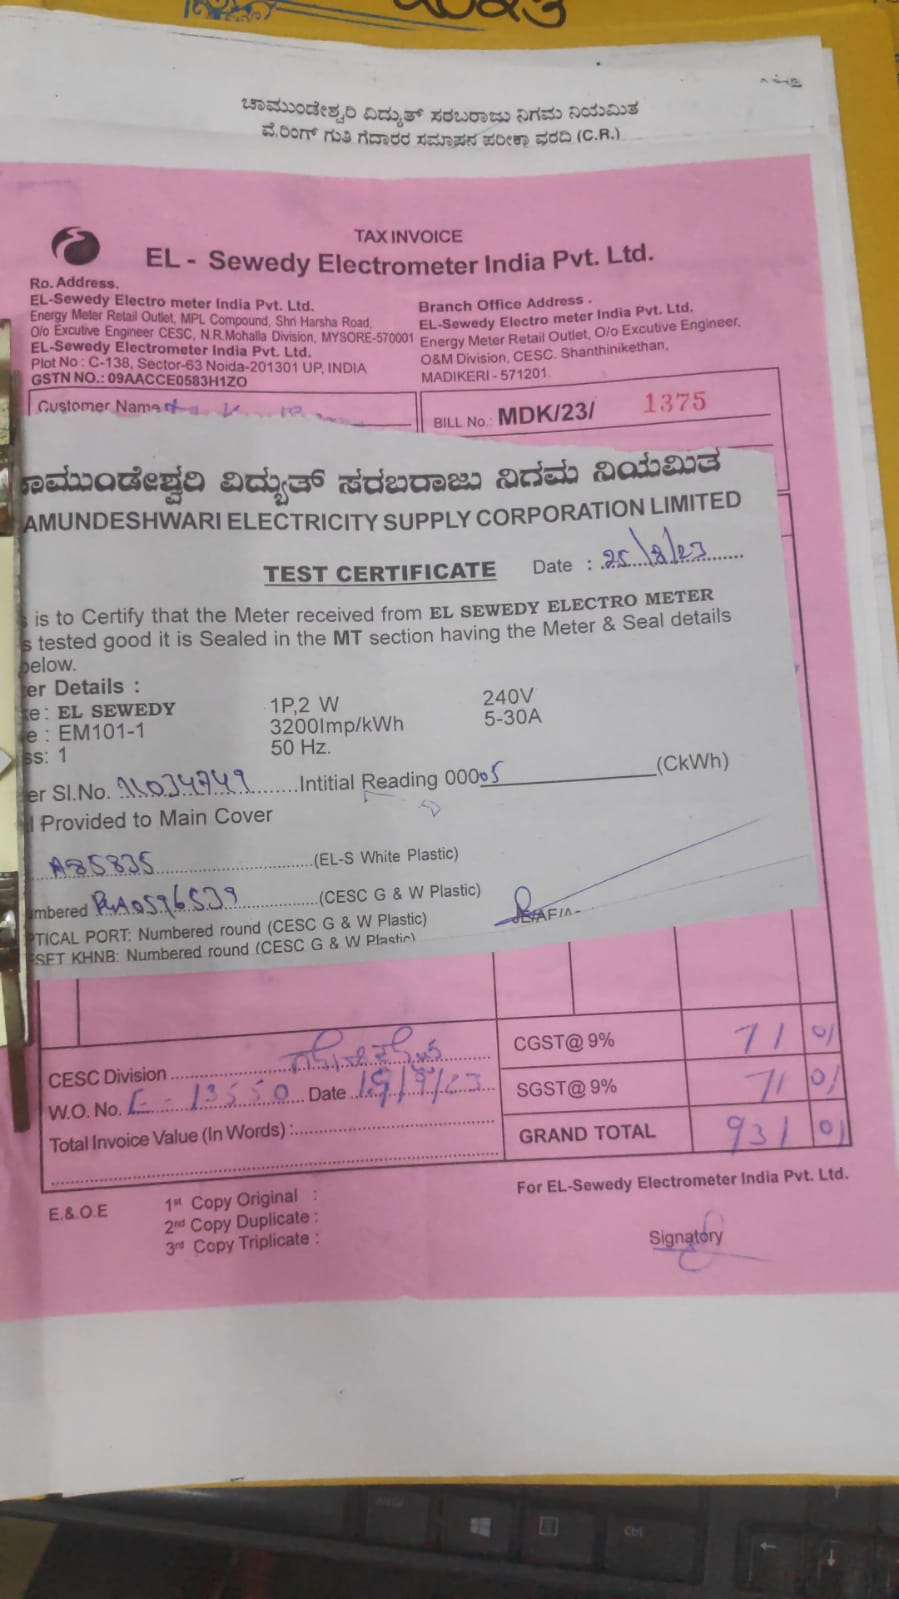 ಚಾಮುಂಡೇಶ್ವರಿ ವಿದ್ಯುತ್ ಸರಬರಾಜು ನಿಗಮ ನಿಯಮಿತ
ವೈರಿಂಗ್ ಗುತ್ತಿಗೆದಾರರ ಸಮಾಪನ ಪರೀಕ್ಷಾ ವರದಿ (C.R.)
TAX INVOICE
EL - Sewedy Electrometer India Pvt. Ltd.
Ro. Address.
EL-Sewedy Electro meter India Pvt. Ltd.
Energy Meter Retail Outlet, MPL Compound, Shri Harsha Road,
O/o Excutive Engineer CESC, N.R.Mohalla Division, MYSORE-570001
EL-Sewedy Electrometer India Pvt. Ltd.
Plot No : C-138, Sector-63 Noida-201301 UP, INDIA
GSTN NO.: 09AACCE0583H1ZO
Branch Office Address .
EL-Sewedy Electro meter India Pvt. Ltd.
Energy Meter Retail Outlet, O/o Excutive Engineer,
O&M Division, CESC. Shanthinikethan,
MADIKERI - 571201.
Customer Name
BILL No.: MDK/23/ 1375
ಚಾಮುಂಡೇಶ್ವರಿ ವಿದ್ಯುತ್ ಸರಬರಾಜು ನಿಗಮ ನಿಯಮಿತ
AMUNDESHWARI ELECTRICITY SUPPLY CORPORATION LIMITED
TEST CERTIFICATE Date : 25/8/23
is to Certify that the Meter received from EL SEWEDY ELECTRO METER
s tested good it is Sealed in the MT section having the Meter & Seal details
below.
er Details :
e : EL SEWEDY 1P,2 W 240V
e : EM101-1 3200Imp/kWh 5-30A
ss: 1 50 Hz.
er Sl.No. 11034749 Intitial Reading 00005 (CkWh)
l Provided to Main Cover
A85835 (EL-S White Plastic)
umbered (CESC G & W Plastic)
TICAL PORT: Numbered round (CESC G & W Plastic)
SET KHNB: Numbered round (CESC G & W Plastic)
CGST@ 9% 71 01
CESC Division
SGST@ 9% 71 01
W.O. No. E - 13550 Date 19/9/23
GRAND TOTAL 931 01
Total Invoice Value (In Words) :
For EL-Sewedy Electrometer India Pvt. Ltd.
E.& O.E 1st Copy Original :
2nd Copy Duplicate :
3rd Copy Triplicate :
Signatory
Ctrl